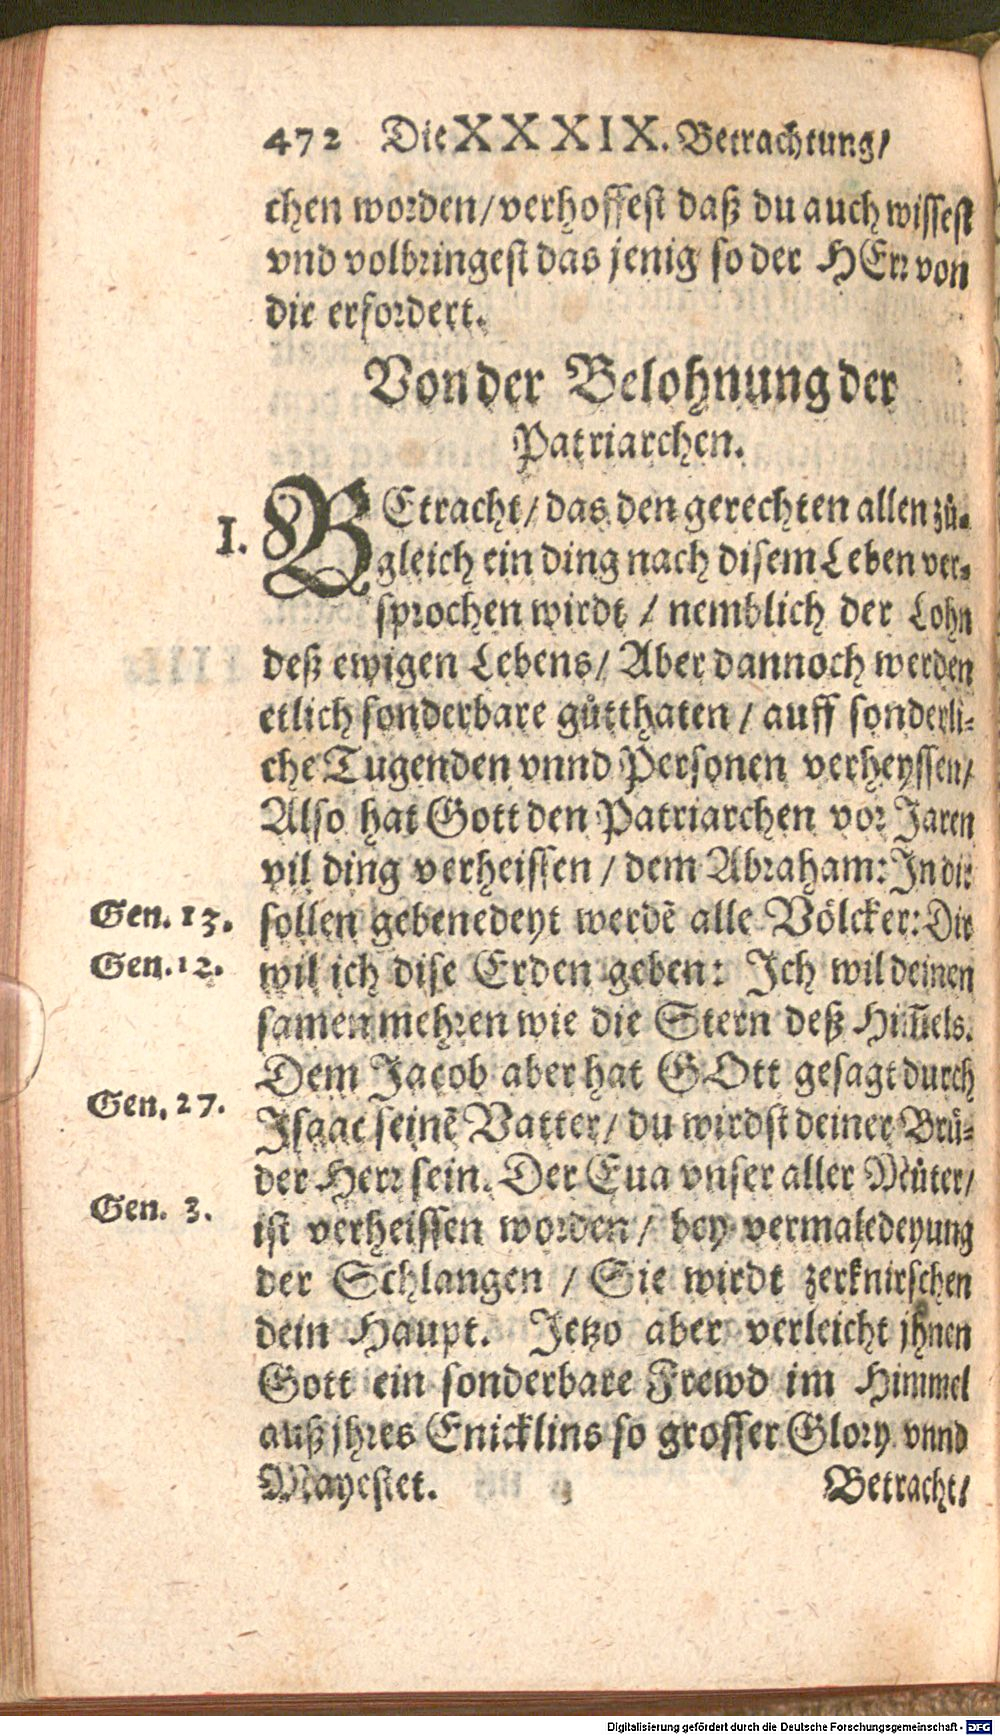 472 Die XXXIX. Betrachtung/
chen worden/verhoffest daß du auch wissest
vnd volbringest das jenig so der HErr von
dir erfordert.
Von der Belohnung der
Patriarchen.
I. BEtracht/ das den gerechten allen zů-
gleich ein ding nach disem Leben ver-
sprochen wirdt / nemblich der Lohn
deß ewigen Lebens/ Aber dannoch werden
etlich sonderbare gůtthaten / auff sonderli-
che Tugenden vnnd Personen verheyssen/
Also hat Gott den Patriarchen vor Jaren
vil ding verheissen / dem Abraham: In dir
Gen. 13. sollen gebenedeyt werdē alle Völcker: Dir
Gen. 12. wil ich dise Erden geben: Ich wil deinen
samen mehren wie die Stern deß Him̃els.
Dem Jacob aber hat GOtt gesagt durch
Gen. 27. Isaac seinē Vatter/ du wirdst deiner Brü-
der Herr sein. Der Eua vnser aller Můter/
Gen. 3. ist verheissen worden/ bey vermaledeyung
der Schlangen / Sie wirdt zerknirschen
dein Haupt. Jetzo aber verleicht jhnen
Gott ein sonderbare Frewd im Himmel
auß jhres Enicklins so grosser Glory vnnd
Mayestet. Betracht/
Digitalisierung gefördert durch die Deutsche Forschungsgemeinschaft - DFG